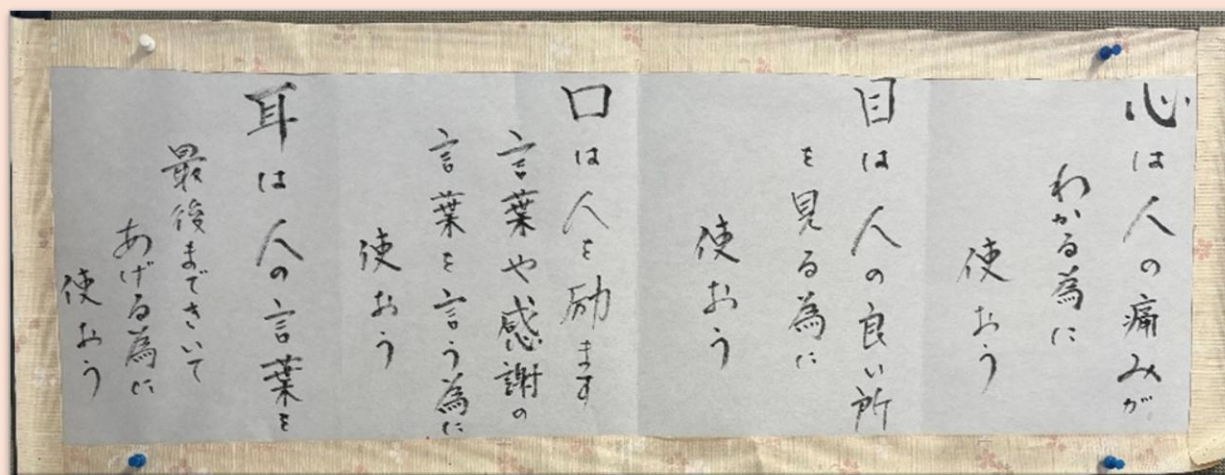 心は人の痛みが
わかる為に
使おう
目は人の良い所
を見る為に
使おう
口は人を励ます
言葉や感謝の
言葉を言う為に
使おう
耳は人の言葉を
最後まできいて
あげる為に
使おう